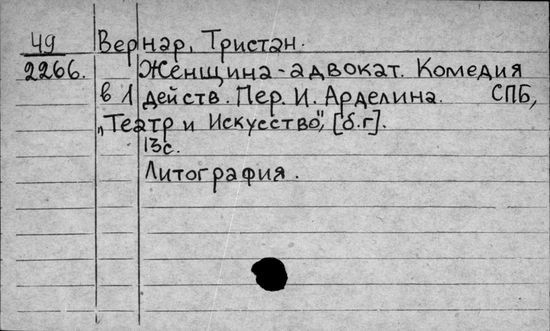 49 Вернар, Тристан.
2266. Женщина-адвокат. Комедия
в 1 действ. Пер. И. Арделина. СПБ,
„Театр и Искусство", [б.г].
13с.
Литография.